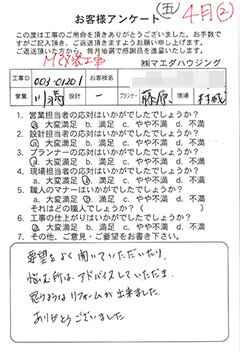 五 4月(2)
お客様アンケート
この度は工事のご用命を頂きありがとうございます。お手数で
すがご記入頂き、ご返送頂きますようお願い申し上げます。
ご返送いただきますと、毎月抽選で感謝品を進呈いたします。
㈱マエダハウジング
工事ID 003-01201 お客様名
営業 設計 ー プランナー 藤原 現場 村
1. 営業担当者の応対はいかがでしたでしょうか?
a. 大変満足 b. 満足 c. やや不満 d. 不満
2. 設計担当者の応対はいかがでしたでしょうか?
a. 大変満足 b. 満足 c. やや不満 d. 不満
3. プランナーの応対はいかがでしたでしょうか?
a. 大変満足 b. 満足 c. やや不満 d. 不満
4. 現場担当者の応対はいかがでしたでしょうか?
a. 大変満足 b. 満足 c. やや不満 d. 不満
5. 職人のマナーはいかがでしたでしょうか?
a. 大変満足 b. 満足 c. やや不満 d. 不満
それはどの職人でしょうか?( )
6. 工事の仕上がりはいかがでしたでしょうか?
a. 大変満足 b. 満足 c. やや不満 d. 不満
7. その他、ご意見・ご要望をお書き下さい。
要望をよく聞いていただいたり、
悩む所は、アドバイスしていただき、
思うようなリフォームが出来ました。
ありがとうございました